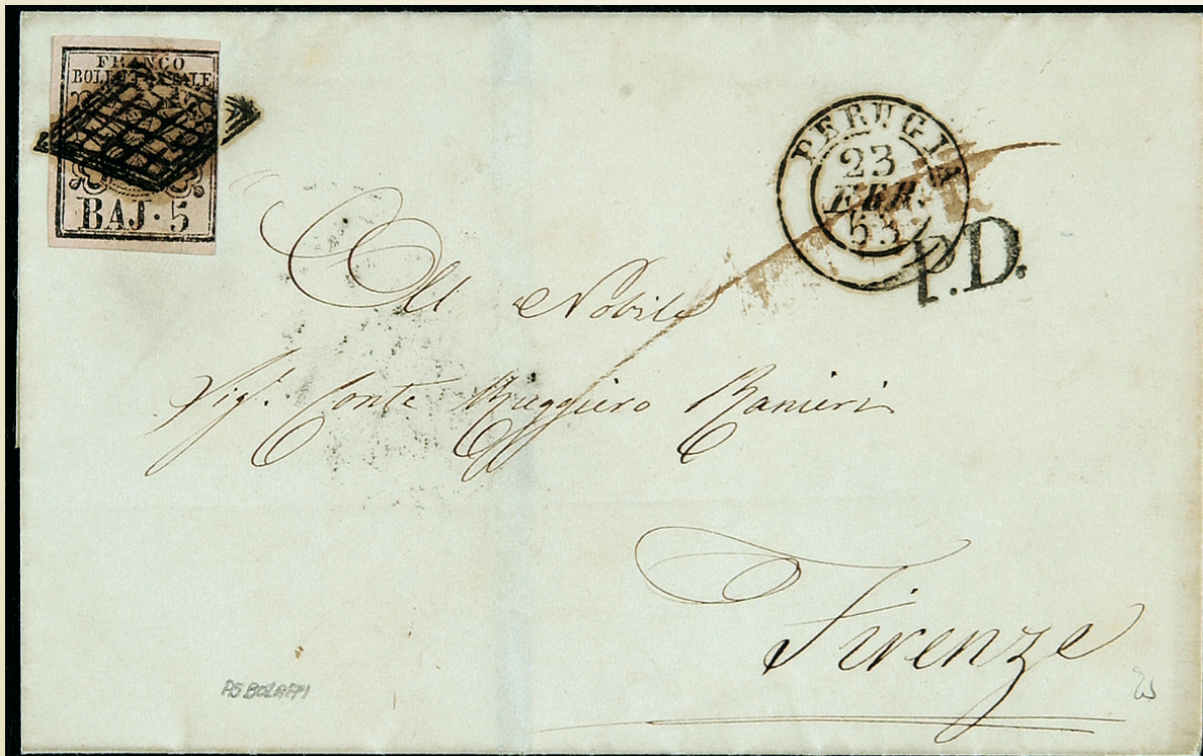 FRANCO
BOLLO POSTALE
BAJ · 5
PERUGIA
23
FEB.
53
P.D.
All Nobile
Sigr. Conte Ruggiero Ranieri
Firenze
AS BOLAFFI